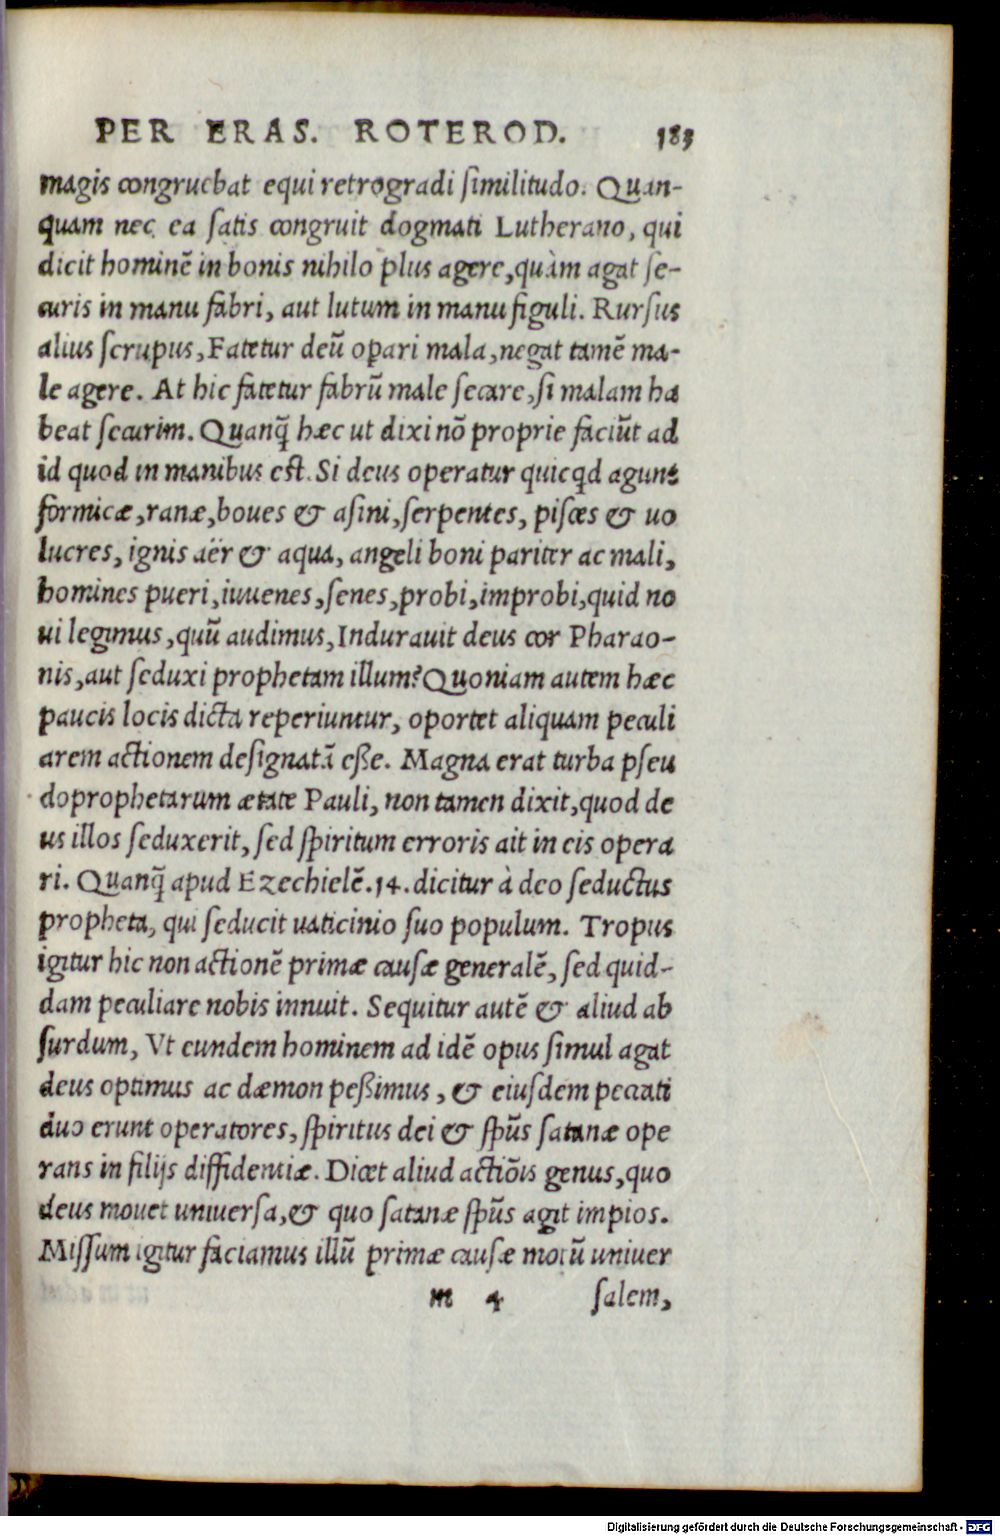 PER ERAS. ROTEROD. 183
magis congruebat equi retrogradi ſimilitudo. Quan-
quam nec ea ſatis congruit dogmati Lutherano, qui
dicit hominē in bonis nihilo plus agere, quàm agat ſe-
curis in manu fabri, aut lutum in manu figuli. Rurſus
alius ſcrupus, Fatetur deū operari mala, negat tamē ma-
le agere. At hic fatetur fabrū male ſecare, ſi malam ha
beat ſecurim. Quanq̃ hæc ut dixi nō proprie faciūt ad
id quod in manibus eſt. Si deus operatur quicqd agunt
formicæ, ranæ, boues & aſini, ſerpentes, piſces & uo
lucres, ignis aër & aqua, angeli boni pariter ac mali,
homines pueri, iuuenes, ſenes, probi, improbi, quid no
ui legimus, quū audimus, Indurauit deus cor Pharao-
nis, aut ſeduxi prophetam illum? Quoniam autem hæc
paucis locis dicta reperiuntur, oportet aliquam peculi
arem actionem deſignatā eſſe. Magna erat turba pſeu
doprophetarum ætate Pauli, non tamen dixit, quod de
us illos ſeduxerit, ſed ſpiritum erroris ait in eis opera
ri. Quanq̃ apud Ezechielē. 14. dicitur à deo ſeductus
propheta, qui ſeducit uaticinio ſuo populum. Tropus
igitur hic non actionē primæ cauſæ generalē, ſed quid-
dam peculiare nobis innuit. Sequitur autē & aliud ab
ſurdum, Vt eundem hominem ad idē opus ſimul agat
deus optimus ac dæmon peſſimus, & eiuſdem peccati
duo erunt operatores, ſpiritus dei & ſpūs ſatanæ ope
rans in filijs diffidentiæ. Dicet aliud actiōis genus, quo
deus mouet uniuerſa, & quo ſatanæ ſpūs agit impios.
Miſſum igitur faciamus illū primæ cauſæ motū uniuer
m 4 ſalem,
Digitalisierung gefördert durch die Deutsche Forschungsgemeinschaft - DFG